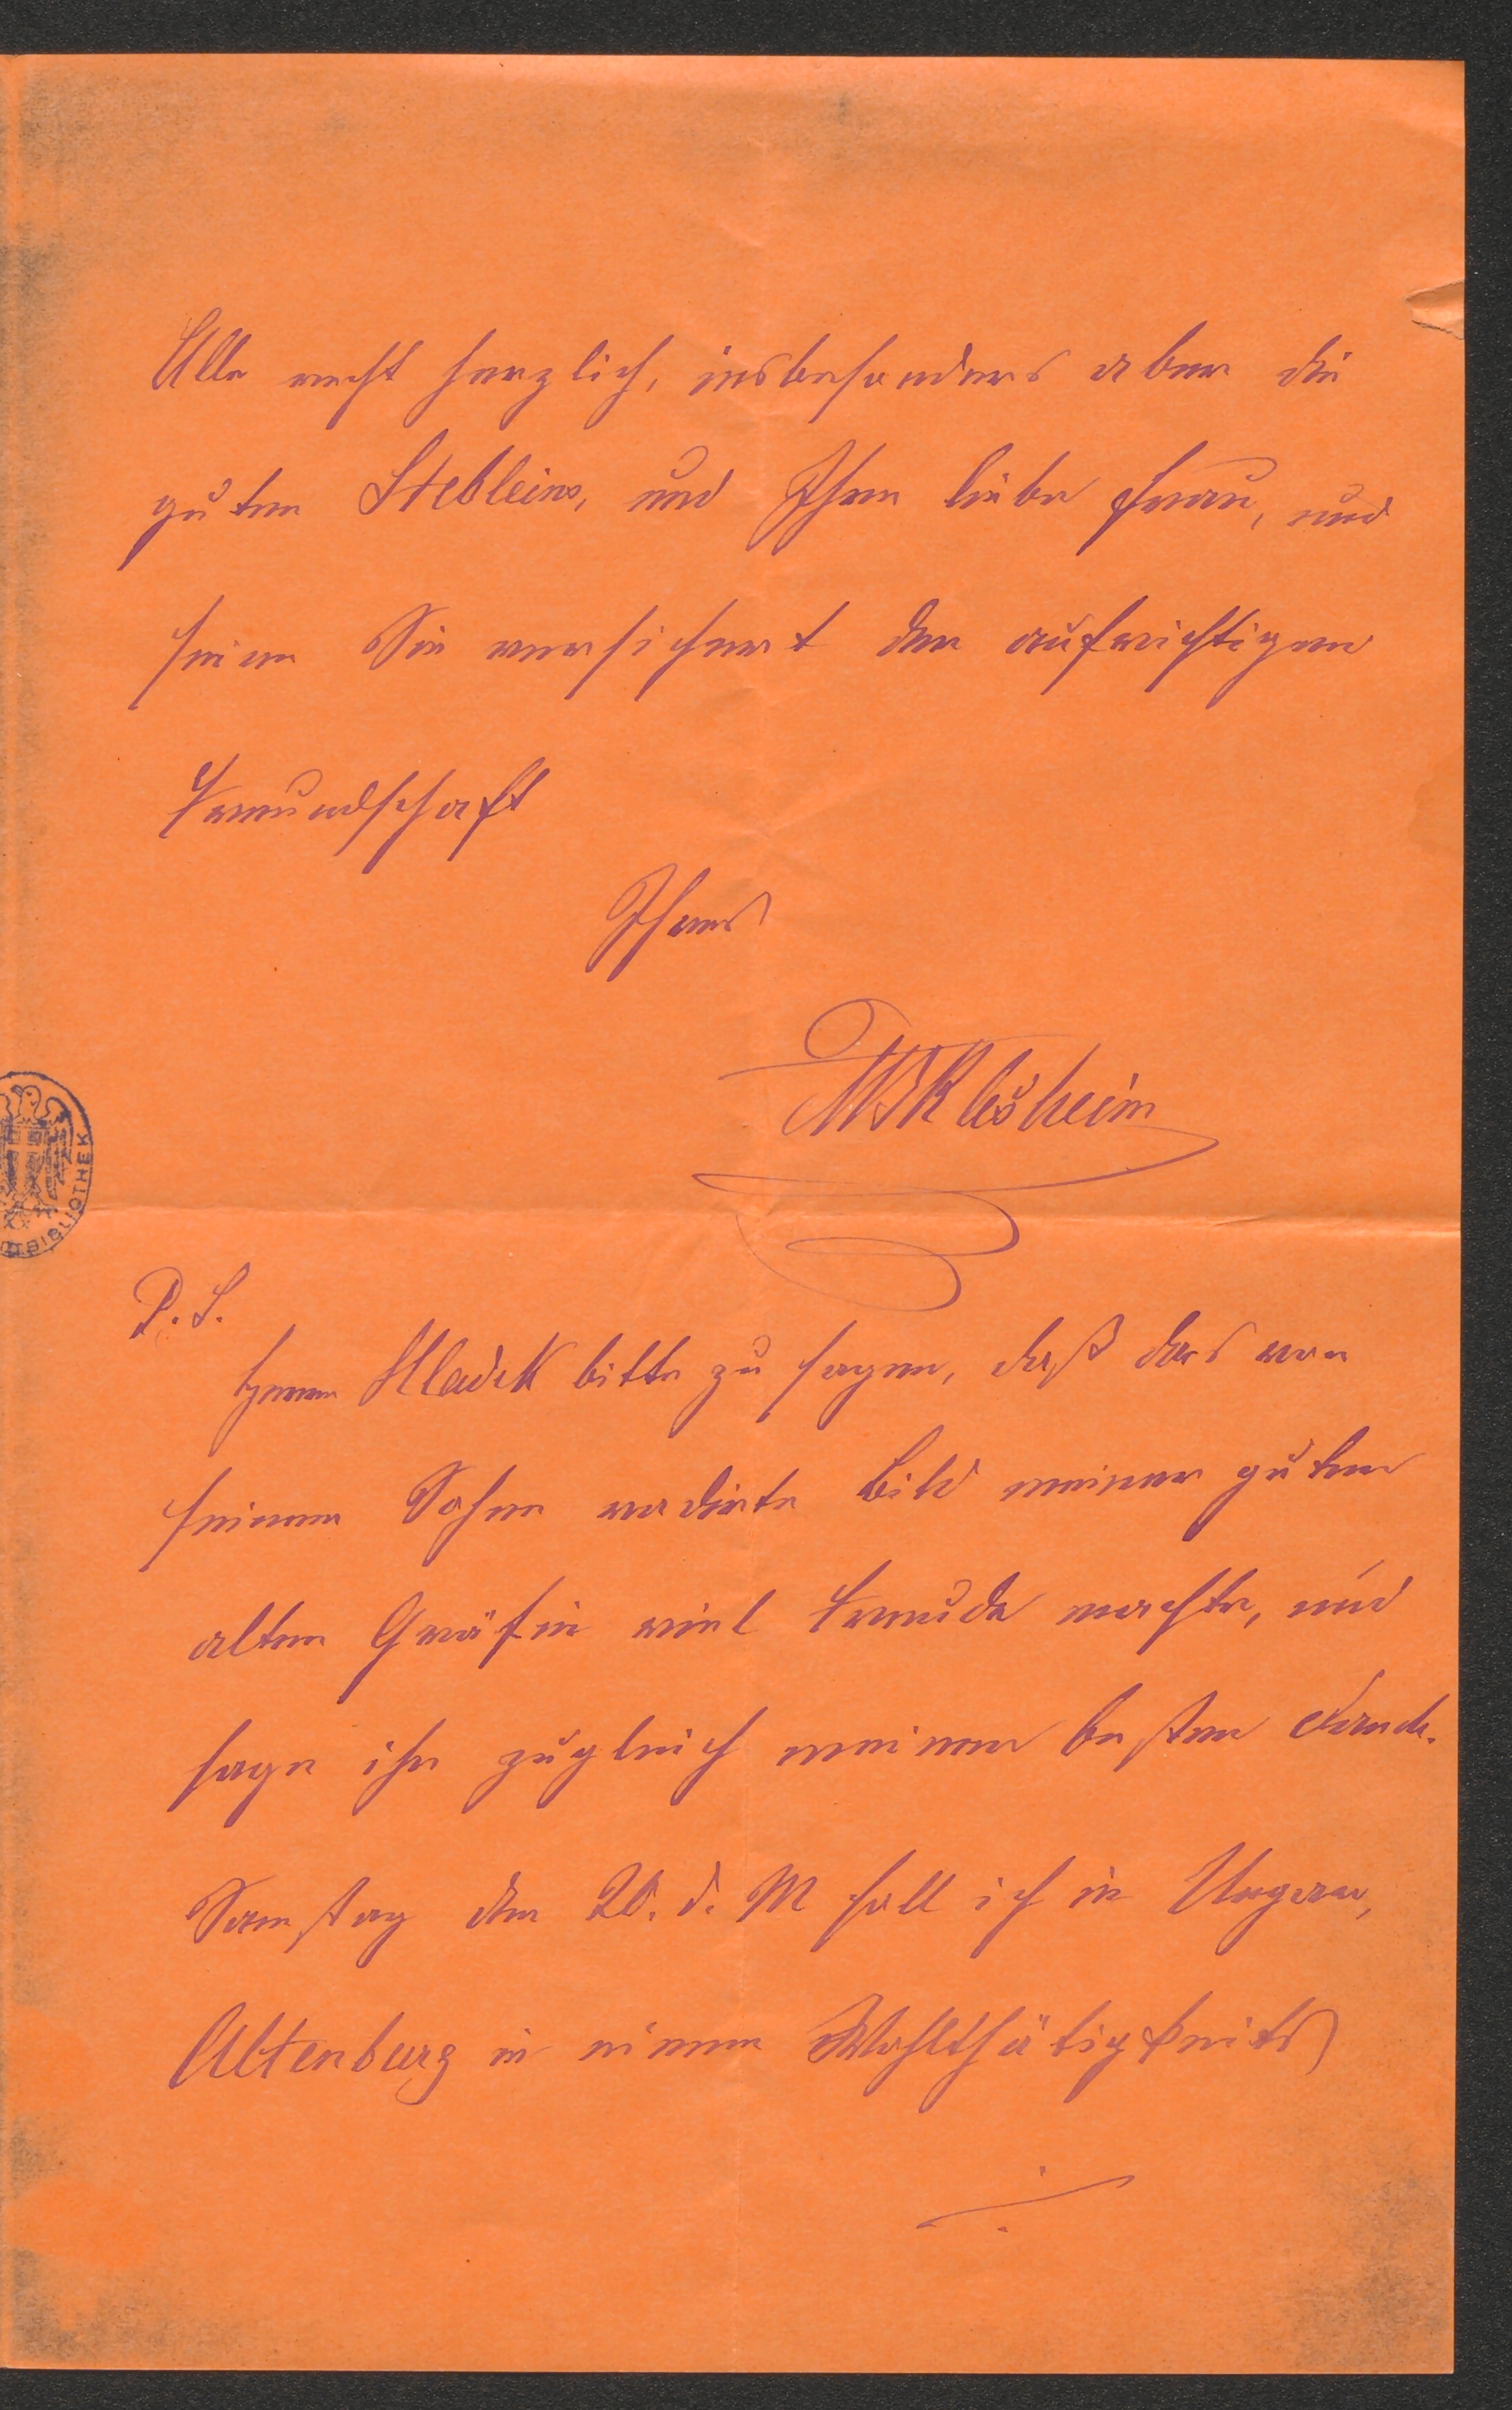 Alle recht herzlich, insbesonders aber die
guten Stebleins, und Ihre liebe Frau, und
seien Sie versichert der aufrichtigen
Freundschaft
Ihres
Klesheim
P. S.
Herrn Hladek bitte zu sagen, daß das von
seinem Sohne radirte Bild meiner guten
alten Gräfin viel Freude machte, und
sage ihr zugleich meinen besten Dank.
Samstag den 20. d. M soll ich in Ungarn,
Altenburg in einem Wohlthätigkeits
BIBLIOTHEK